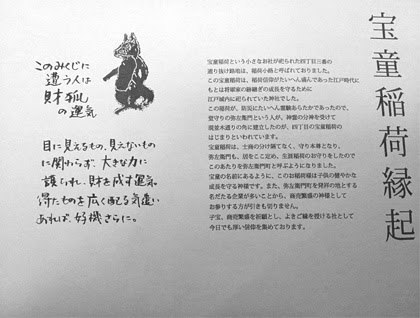 宝童稲荷縁起
宝童稲荷という小さなお社が祀られた四丁目三番の
通り抜け路地は、稲荷小路と呼ばれておりました。
この宝童稲荷は、稲荷信仰がたいへん盛んであった江戸時代に
もとは将軍家の世継ぎの成長を守るために
江戸城内に祀られていた神社でした。
この稲荷が、防災にたいへん霊験あらたかであったので、
堂守りの弥左衛門という人が、神霊の分神を受けて
現並木通りの角に建立したのが、四丁目の宝童稲荷の
はじまりといわれています。
宝童稲荷は、士商の分け隔てなく、守り本尊となり、
弥左衛門も、居をここ定め、生涯稲荷のお守りをしたので
このあたりを弥左衛門町と呼ぶようになりました。
宝童の名前にあるように、このお稲荷様は子供の健やかな
成長を守る神様です。また、弥左衛門町を発祥の地とする
名だたる企業が多いことから、商売繁盛の神様として
お参りする方が引きも切りません。
子宝、商売繁盛を祈願し、よきご縁を授ける社として
今日でも厚い信仰を集めております。
このみくじに
遭う人は
財狐
の運気
目に見えるもの、見えないもの
に関わらず、大きな力に
護られ、財を成す運気。
得たものを広く配る気遣い
あれば、好機さらに。